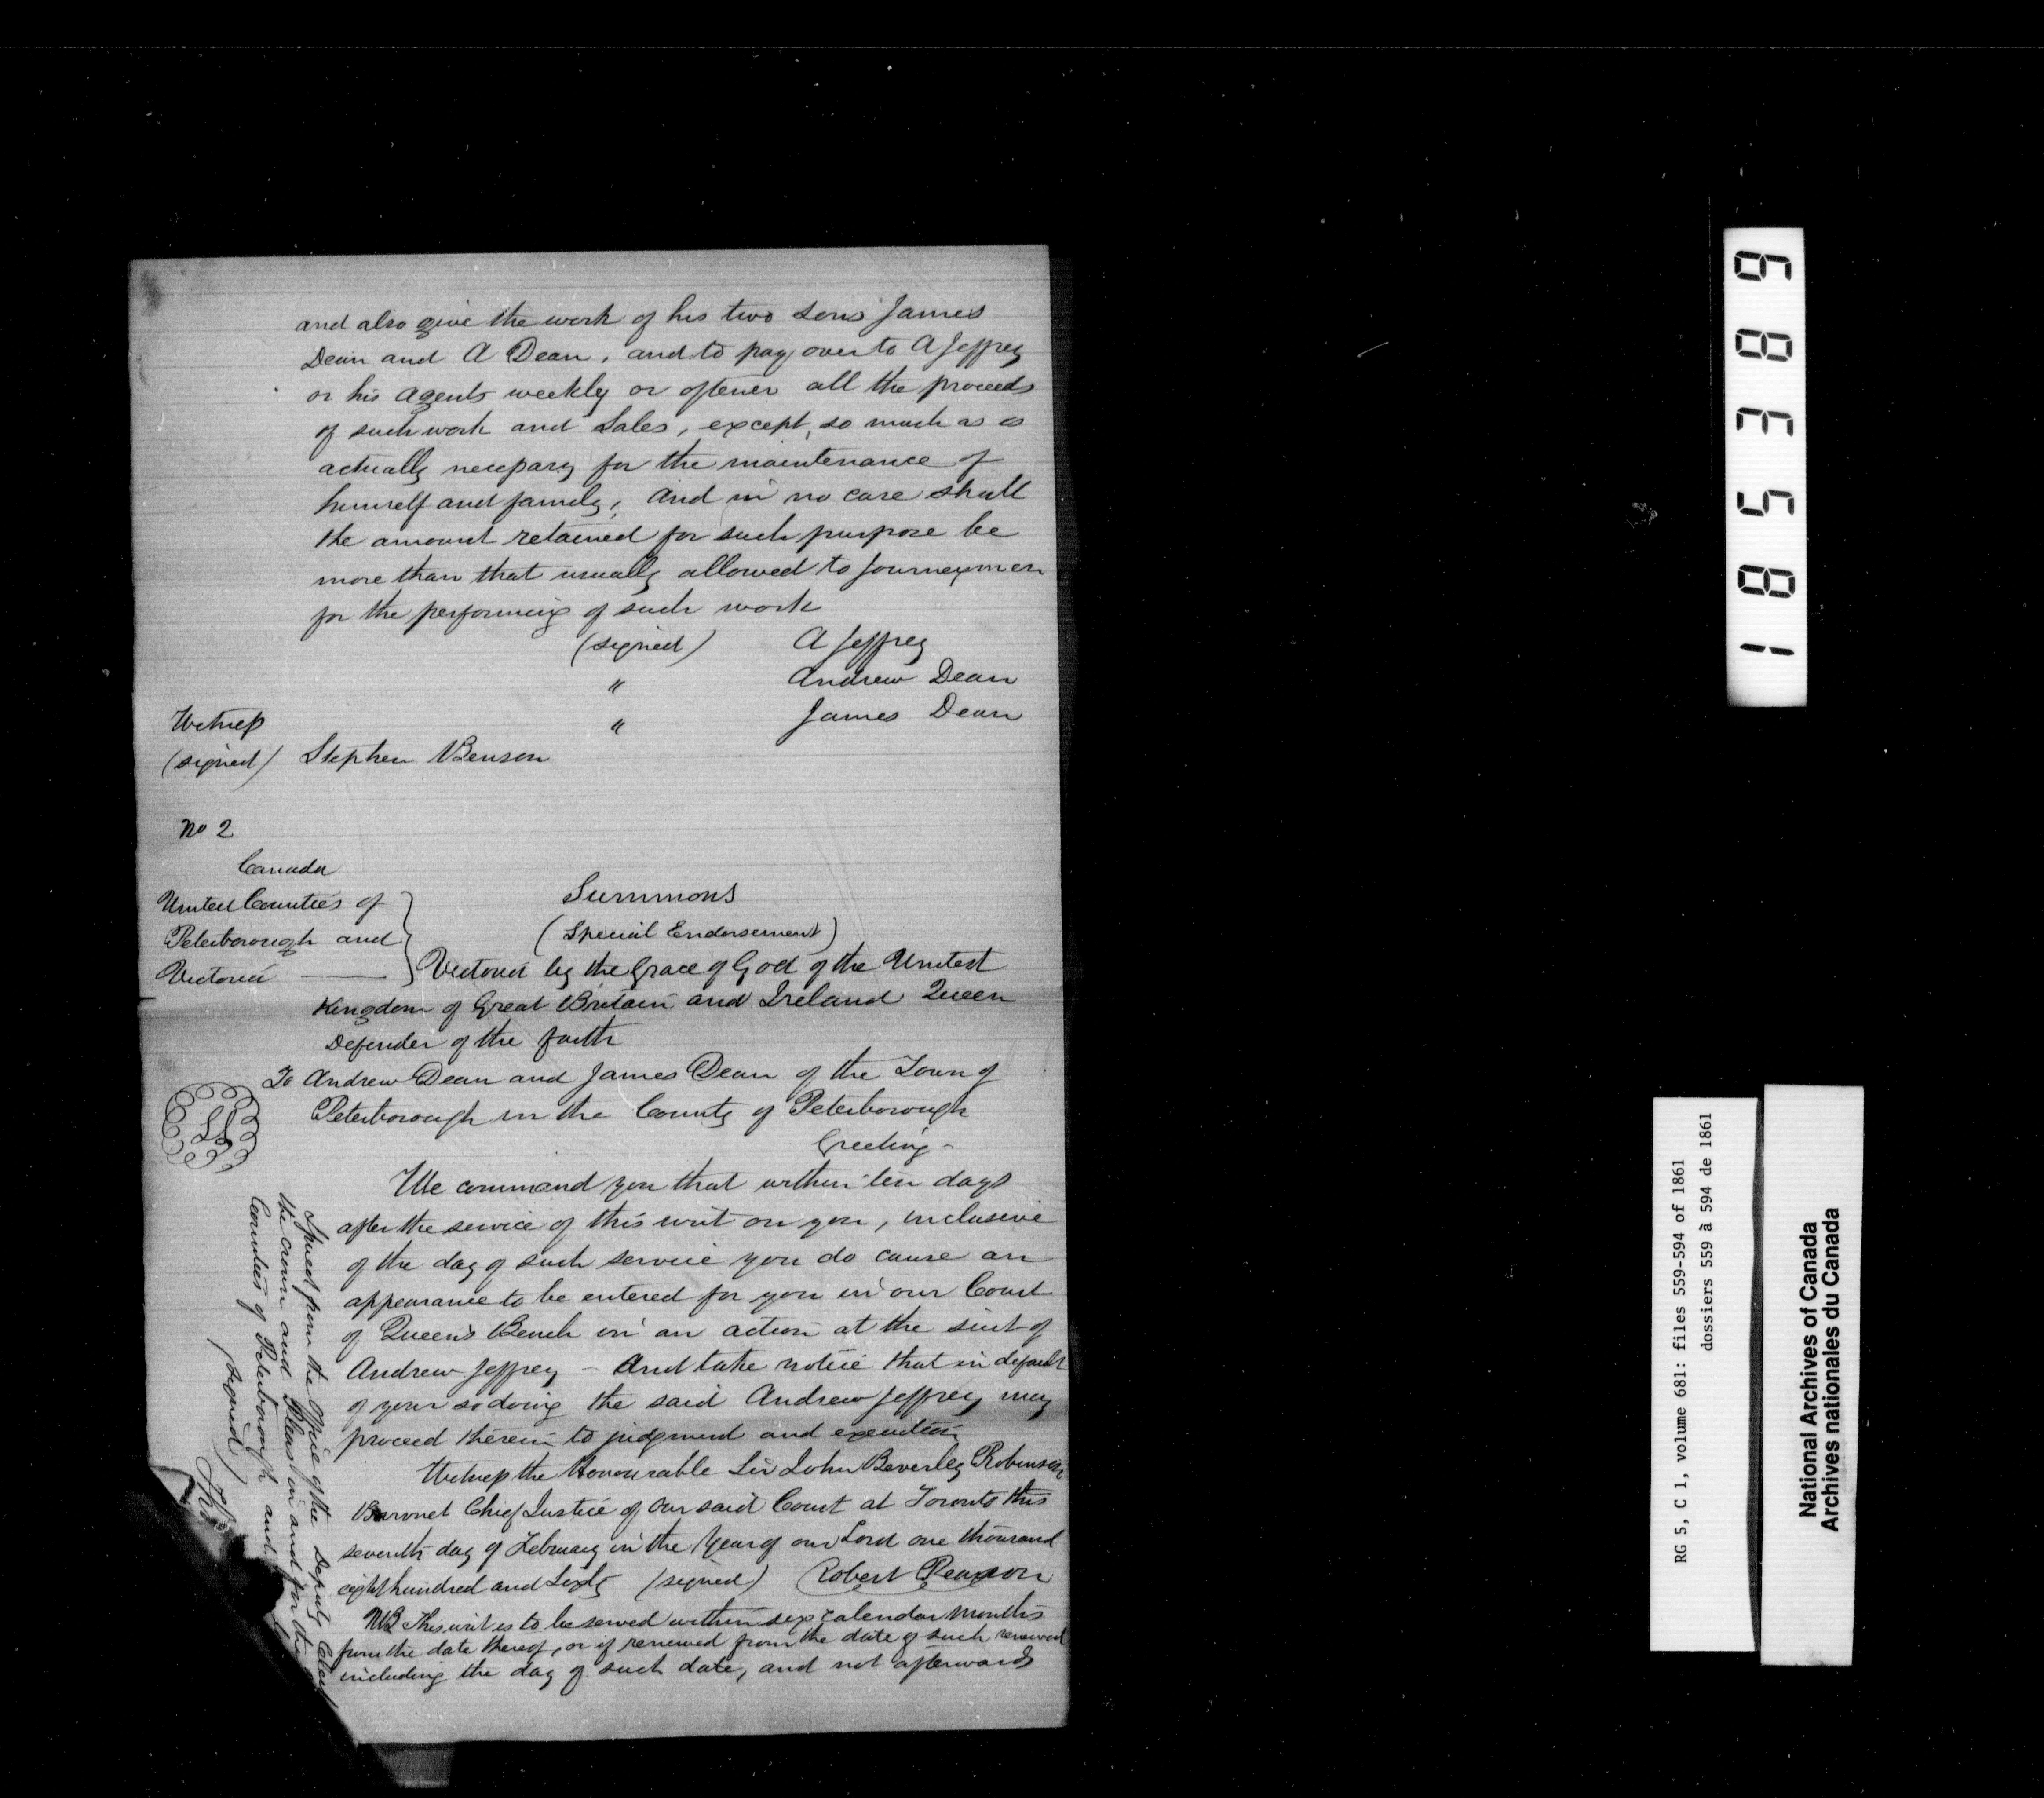 and also give the work of his two sons James
Dean and A Dean, and to pay over to A Jeffrey
or his agents weekly or oftener all the proceeds
of such work and Sales, except, so much as is
actually necessary for the maintenance of
himself and family, and in no case shall
the amount retained for such purpose be
more than that usually allowed to Journeymen
for the performing of such work
(signed) A Jeffrey
" Andrew Dean
Witness " James Dean
(signed) Stephen Benson
No 2
Canada
United Counties of
Peterborough and
Victoria
Summons
(Special Endorsement)
Victoria by the Grace of God of the United
Kingdom of Great Britain and Ireland Queen
Defender of the faith
To Andrew Dean and James Dean of the Town of
Peterborough in the County of Peterborough
LS
Greeting -
We command you that within ten days
after the service of this writ on you, inclusive
of the day of such service you do cause an
appearance to be entered for you in our Court
of Queen's Bench in an action at the suit of
Andrew Jeffrey - And take notice that in default
of your so doing the said Andrew Jeffrey may
proceed therein to judgment and execution
Witness the Honourable Sir John Beverley Robinson
Baronet Chief Justice of our said Court at Toronto this
seventh day of February in the Year of our Lord one thousand
eight hundred and Sixty (signed) Robert Pearson
NB This writ is to be served within six calendar months
from the date thereof, or if renewed from the date of such renewal
including the day of such date, and not afterwards
Issued from the Office of the Deputy Clerk
the crown and Pleas in and for the
Counties of Peterborough and
(signed) Tho
185389
RG 5, C 1, volume 681: files 559-594 of 1861
dossiers 559 à 594 de 1861
National Archives of Canada
Archives nationales du Canada